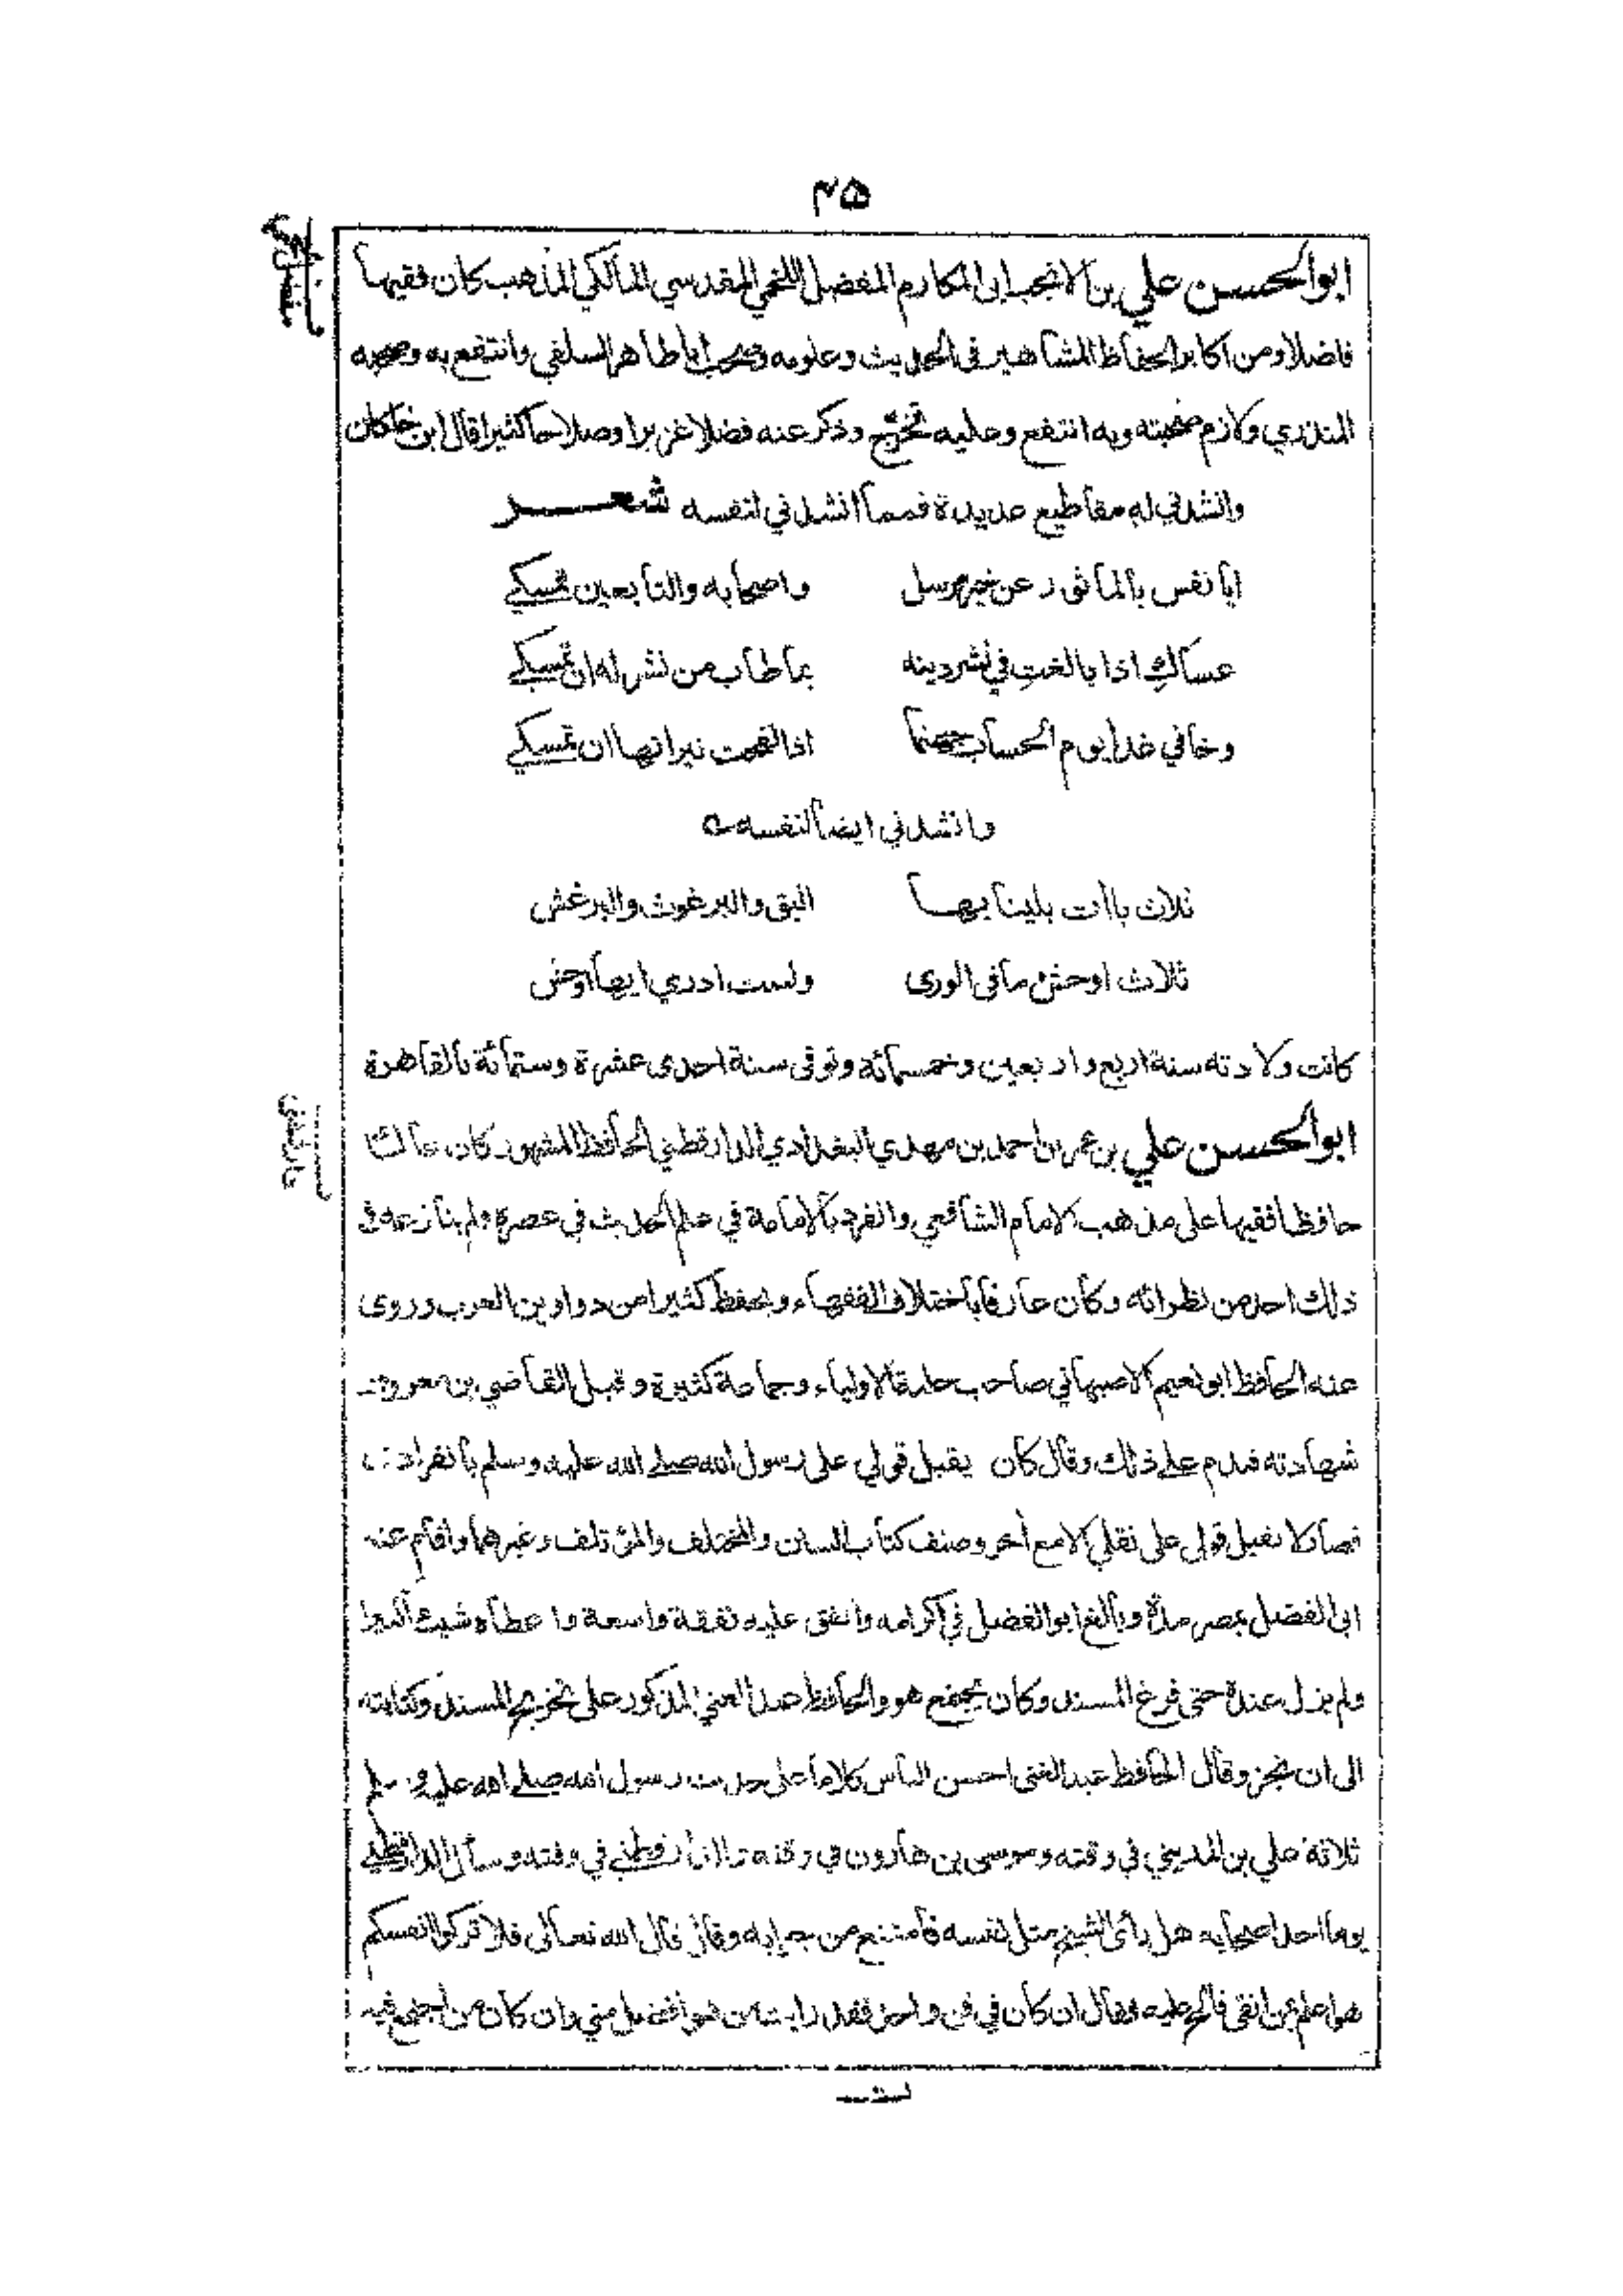 ٤٥
ابو الحسن علي بن الانجب ابى المكارم المفضل اللخمي المقدسي المالكي المذهب كان فقيها
فاضلا ومن اكابر الحفاظ المشاهير فى الحديث وعلومه وصحب ابا طاهر السلفي وانتفع به وصحبه
المنذري ولازم صحبته وبه انتفع وعليه تخرّج وذكر عنه فضلا غزيرا وصلاحا كثيرا قال ابن خلكان
وانشدني له مقاطيع عديدة فمما انشدني لنفسه شعر
ايا نفس بالماثور عن خير مرسل واصحابه والتابعين تمسكي
عساكِ اذا بالغتِ في نشر دينه بما طاب من نشر له ان تمسكي
وخافي غدا يوم الحساب جهنما اذا لفحت نيرانها ان تمسكي
وانشدني ايضا لنفسه
ثلاث باآت بلينا بها البق والبرغوث والبرغش
ثلاث اوحش ما فى الورى ولست ادري ايها اوحش
كانت ولادته سنة اربع واربعين وخمسمائه وتوفى سنة احدى عشرة وستمائة بالقاهرة
ابو الحسن علي بن عمر بن احمد بن مهدي البغدادي الدارقطني الحافظ المشهور كان عالما
حافظا فقيها على مذهب الامام الشافعي وانفرد بالامامة في علم الحديث في عصره ولم ينازعه فى
ذلك احد من نظرائه وكان عارفا باختلاف الفقهاء ويحفظ كثيرا من دواوين العرب وروى
عنه الحافظ ابو نعيم الاصبهاني صاحب حلية الاولياء وجماعة كثيرة وقبل القاضي بن معروف
شهادته فندم على ذلك وقال كان يقبل قولي على رسول الله صلى الله عليه وسلم بانفرادي
فصار لا يقبل قولى على نقلي الا مع آخر وصنف كتاب السنن والمختلف والمؤتلف وغيرهما واقام عند
ابى الفضل بمصر مدة وبالغ ابو الفضل في اكرامه وانفق عليه نفقة واسعة واعطاه شيئا كثيرا
ولم يزل عنده حتى فرغ المسند وكان يجتمع هو والحافظ عبد الغني المذكور على تخريج المسند وكتابته
الى ان نجز وقال الحافظ عبد الغنى احسن الناس كلاما على حديث رسول الله صلى الله عليه وسلم
ثلاثة علي بن المديني في وقته وموسى بن هارون في وقته والدارقطني في وقته وسأل الدارقطني
يوما احد اصحابه هل رأى الشيخ مثل نفسه فامتنع من جوابه وقال قال الله تعالى فلا تزكوا انفسكم
هو اعلم بمن اتقى فالح عليه فقال ان كان في فن واحد فقد رايت من هو افضل مني وان كان من اجتمع فيه